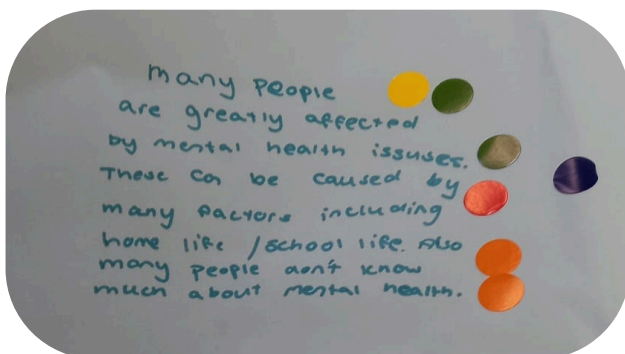 many people
are greatly affected
by mental health issuses.
These can be caused by
many factors including
home life /school life. Also
many people don't know
much about mental health.